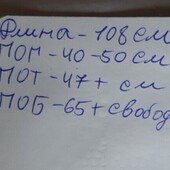 Длина - 108 см
ПОГ - 40-50 см
ПОТ - 47+ см
ПОБ - 65+ свобод